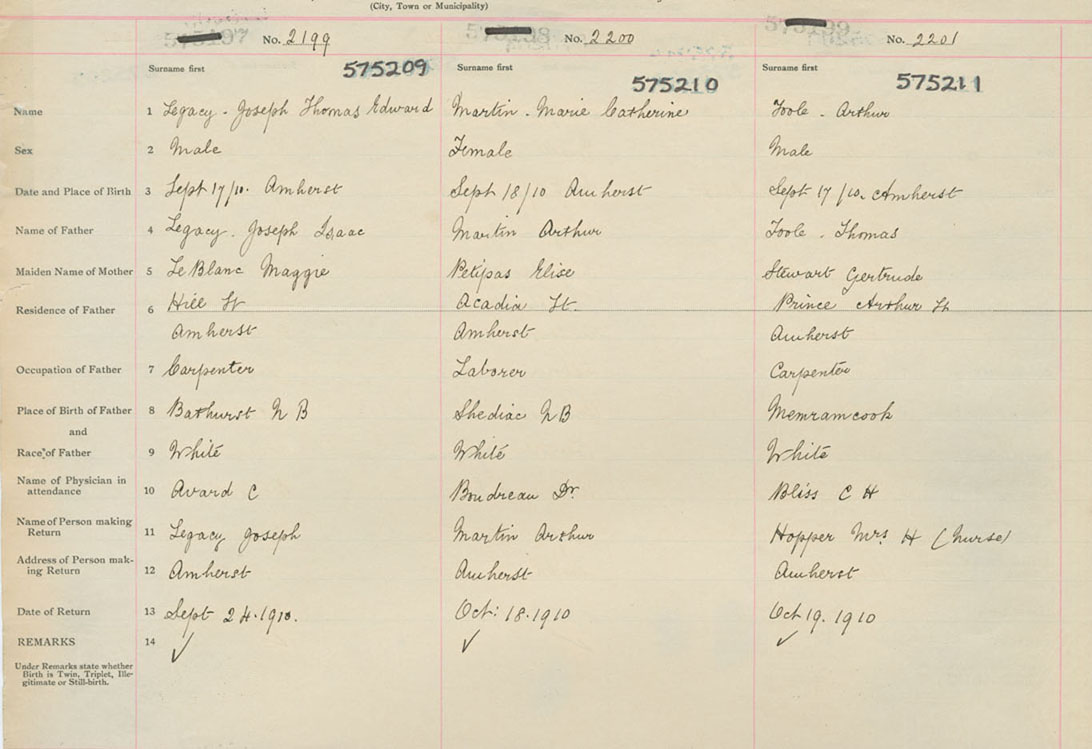 (City, Town or Municipality)
No. 2199 No. 2200 No. 2201
Surname first 575209 Surname first 575210 Surname first 575211
Name 1 Legacy. Joseph Thomas Edward Martin. Marie Catherine Toole. Arthur
Sex 2 Male Female Male
Date and Place of Birth 3 Sept 17/10. Amherst Sept 18/10 Amherst Sept 17/10. Amherst
Name of Father 4 Legacy. Joseph Isaac Martin Arthur Toole. Thomas
Maiden Name of Mother 5 LeBlanc Maggie Petipas Elise Stewart Gertrude
Residence of Father 6 Hill St Acadia St. Prince Arthur St
Amherst Amherst Amherst
Occupation of Father 7 Carpenter Laborer Carpenter
Place of Birth of Father 8 Bathurst N B Shediac N B Memramcook
and
Race of Father 9 White White White
Name of Physician in
attendance 10 Avard C Boudreau Dr. Bliss C H
Name of Person making
Return 11 Legacy Joseph Martin Arthur Hopper Mrs H (nurse)
Address of Person mak-
ing Return 12 Amherst Amherst Amherst
Date of Return 13 Sept 24.1910. Oct: 18.1910 Oct 19. 1910
REMARKS 14 ✓ ✓ ✓
Under Remarks state whether
Birth is Twin, Triplet, Ille-
gitimate or Still-birth.